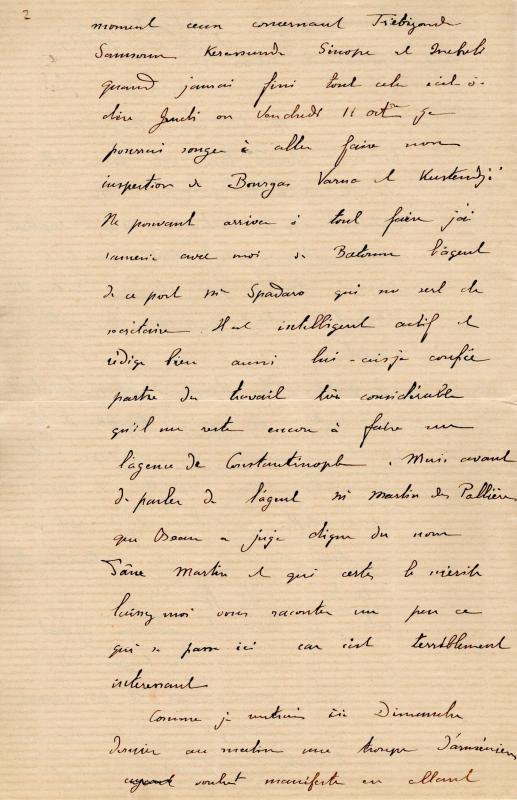 2
moment ceux concernant Trébizonde
Samsoun Kerassunde Sinope et Ineboli
quand j'aurai fini tout cela c'est-à-
dire Jeudi ou Vendredi 11 octbre je
pourrai songer à aller faire mon
inspection de Bourgas Varna et Kustendjé
Ne pouvant arriver à tout faire j'ai
ramené avec moi de Batoum l'agent
de ce port Mr Spadaro qui me sert de
secrétaire. Il est intelligent actif et
rédige bien aussi lui ai-je confié
partie du travail très considérable
qu'il me reste encore à faire sur
l'agence de Constantinople. Mais avant
de parler de l'agent Mr Martin des Pallières
que a jugé digne du nom
d'âne Martin et qui certes le mérite
laissez moi vous raconter un peu ce
qui se passe ici car c'est terriblement
intéressant
Comme je rentrais ici Dimanche
dernier au matin une troupe d'arméniens
voulut manifester en allant